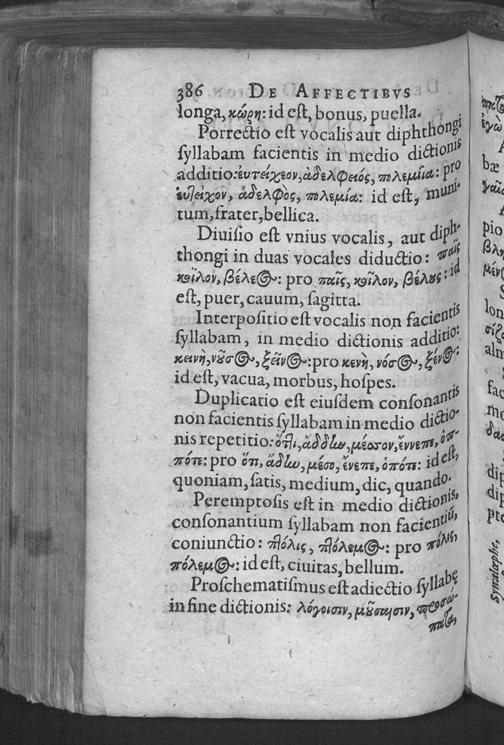 386 DE AFFECTIBVS
longa, κώρη: id eſt, bonus, puella.
Porrectio eſt vocalis aut diphthongi
ſyllabam facientis in medio dictionis
additio: ἐυτείχεον, ἀδελφειός, πολεμίια: pro
ἐυτείχον, ἀδελφὸς, πολεμία: id eſt, muni-
tum, frater, bellica.
Diuiſio eſt vnius vocalis, aut diph-
thongi in duas vocales diductio: παῖς
κόϊλον, βέλεος: pro παῖς, κοῖλον, βέλους: id
eſt, puer, cauum, ſagitta.
Interpoſitio eſt vocalis non facientis
ſyllabam, in medio dictionis additio:
κεινὴ, νοῦσος, ξεῖνος: pro κενὴ, νόσος, ξένος:
id eſt, vacua, morbus, hoſpes.
Duplicatio eſt eiuſdem conſonantis
non facientis ſyllabam in medio dictio-
nis repetitio: ὅττι, ἄδδην, μέσσον, ἔννεπε, ὁπ-
πότε: pro ὅτι, ἄδην, μέσο, ἔνεπε, ὁπότε: id eſt,
quoniam, ſatis, medium, dic, quando.
Peremptoſis eſt in medio dictionis,
conſonantium ſyllabam non facientiũ,
coniunctio: πτόλις, πτόλεμος: pro πόλις,
πόλεμος: id eſt, ciuitas, bellum.
Proſchematiſmus eſt adiectio ſyllabę
in fine dictionis: λόγοισιν, μούσαισιν, προσώ-
πατ,